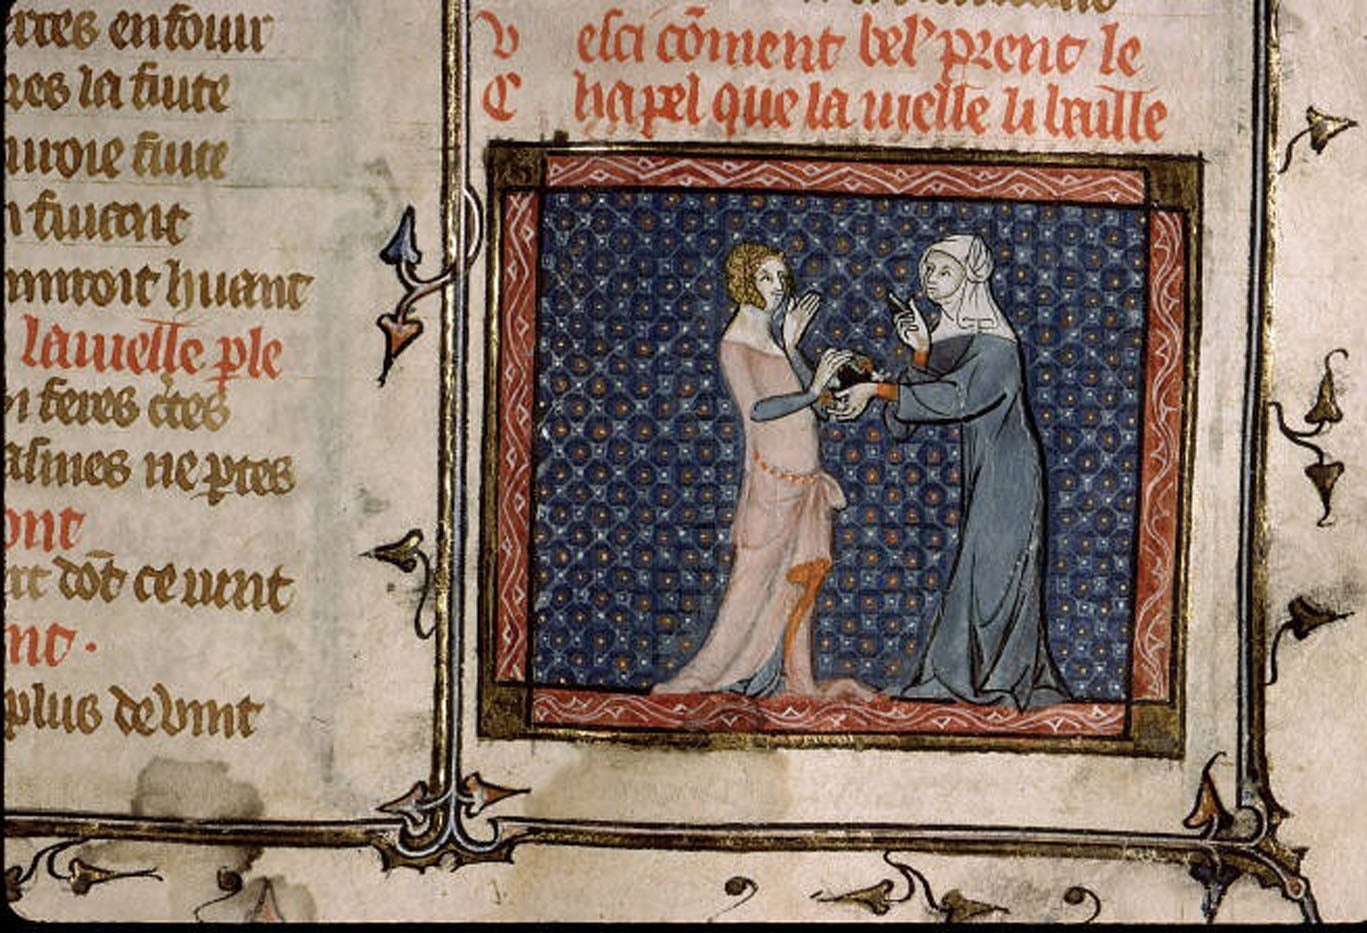 erres enfouir
res la suite
uiroie suite
n suirent
huiant
la uielle ple
n feres ctes
asmes ne ptes
ont
dōt ce uint
nt .
plus de vint
V esci cōment bel' prent le
C hapel que la uielle li baille